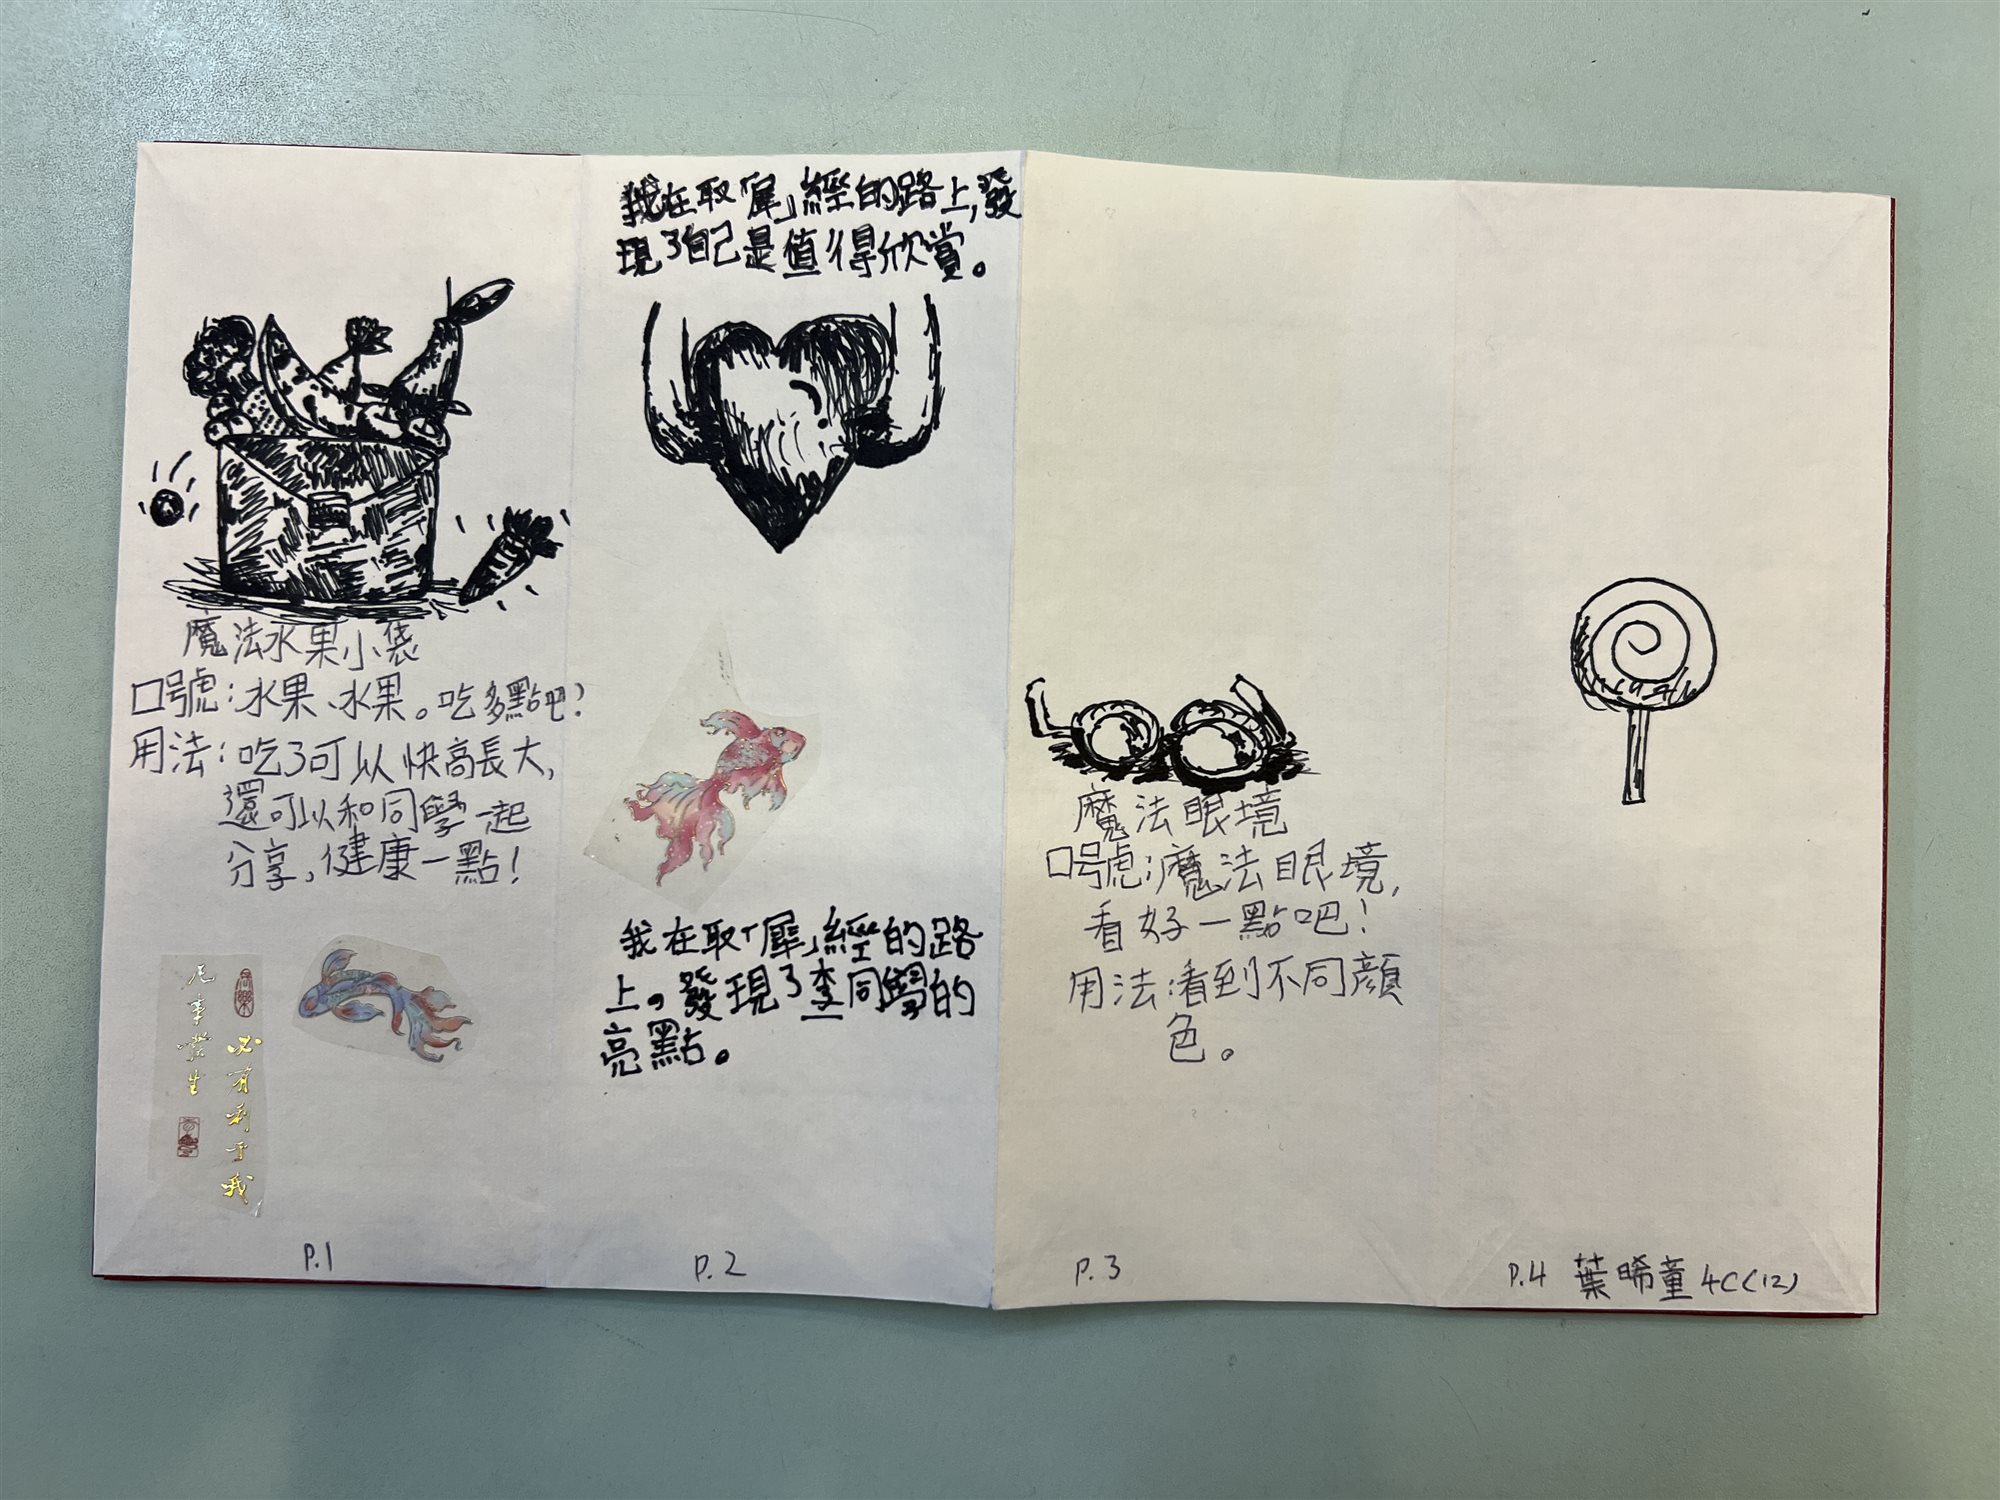 魔法水果小袋
口號：水果、水果。吃多點吧？
用法：吃了可以快高長大，
還可以和同學一起
分享，健康一點！
凡事發生
必有利于我
P.1
我在取「犀」經的路上，發
現了自己是值得欣賞。
我在取「犀」經的路
上。發現了李同學的
亮點。
P.2
魔法眼境
口號；魔法眼境，
看好一點吧！
用法：看到不同顔
色。
P.3
P.4 葉晞童 4C(12)